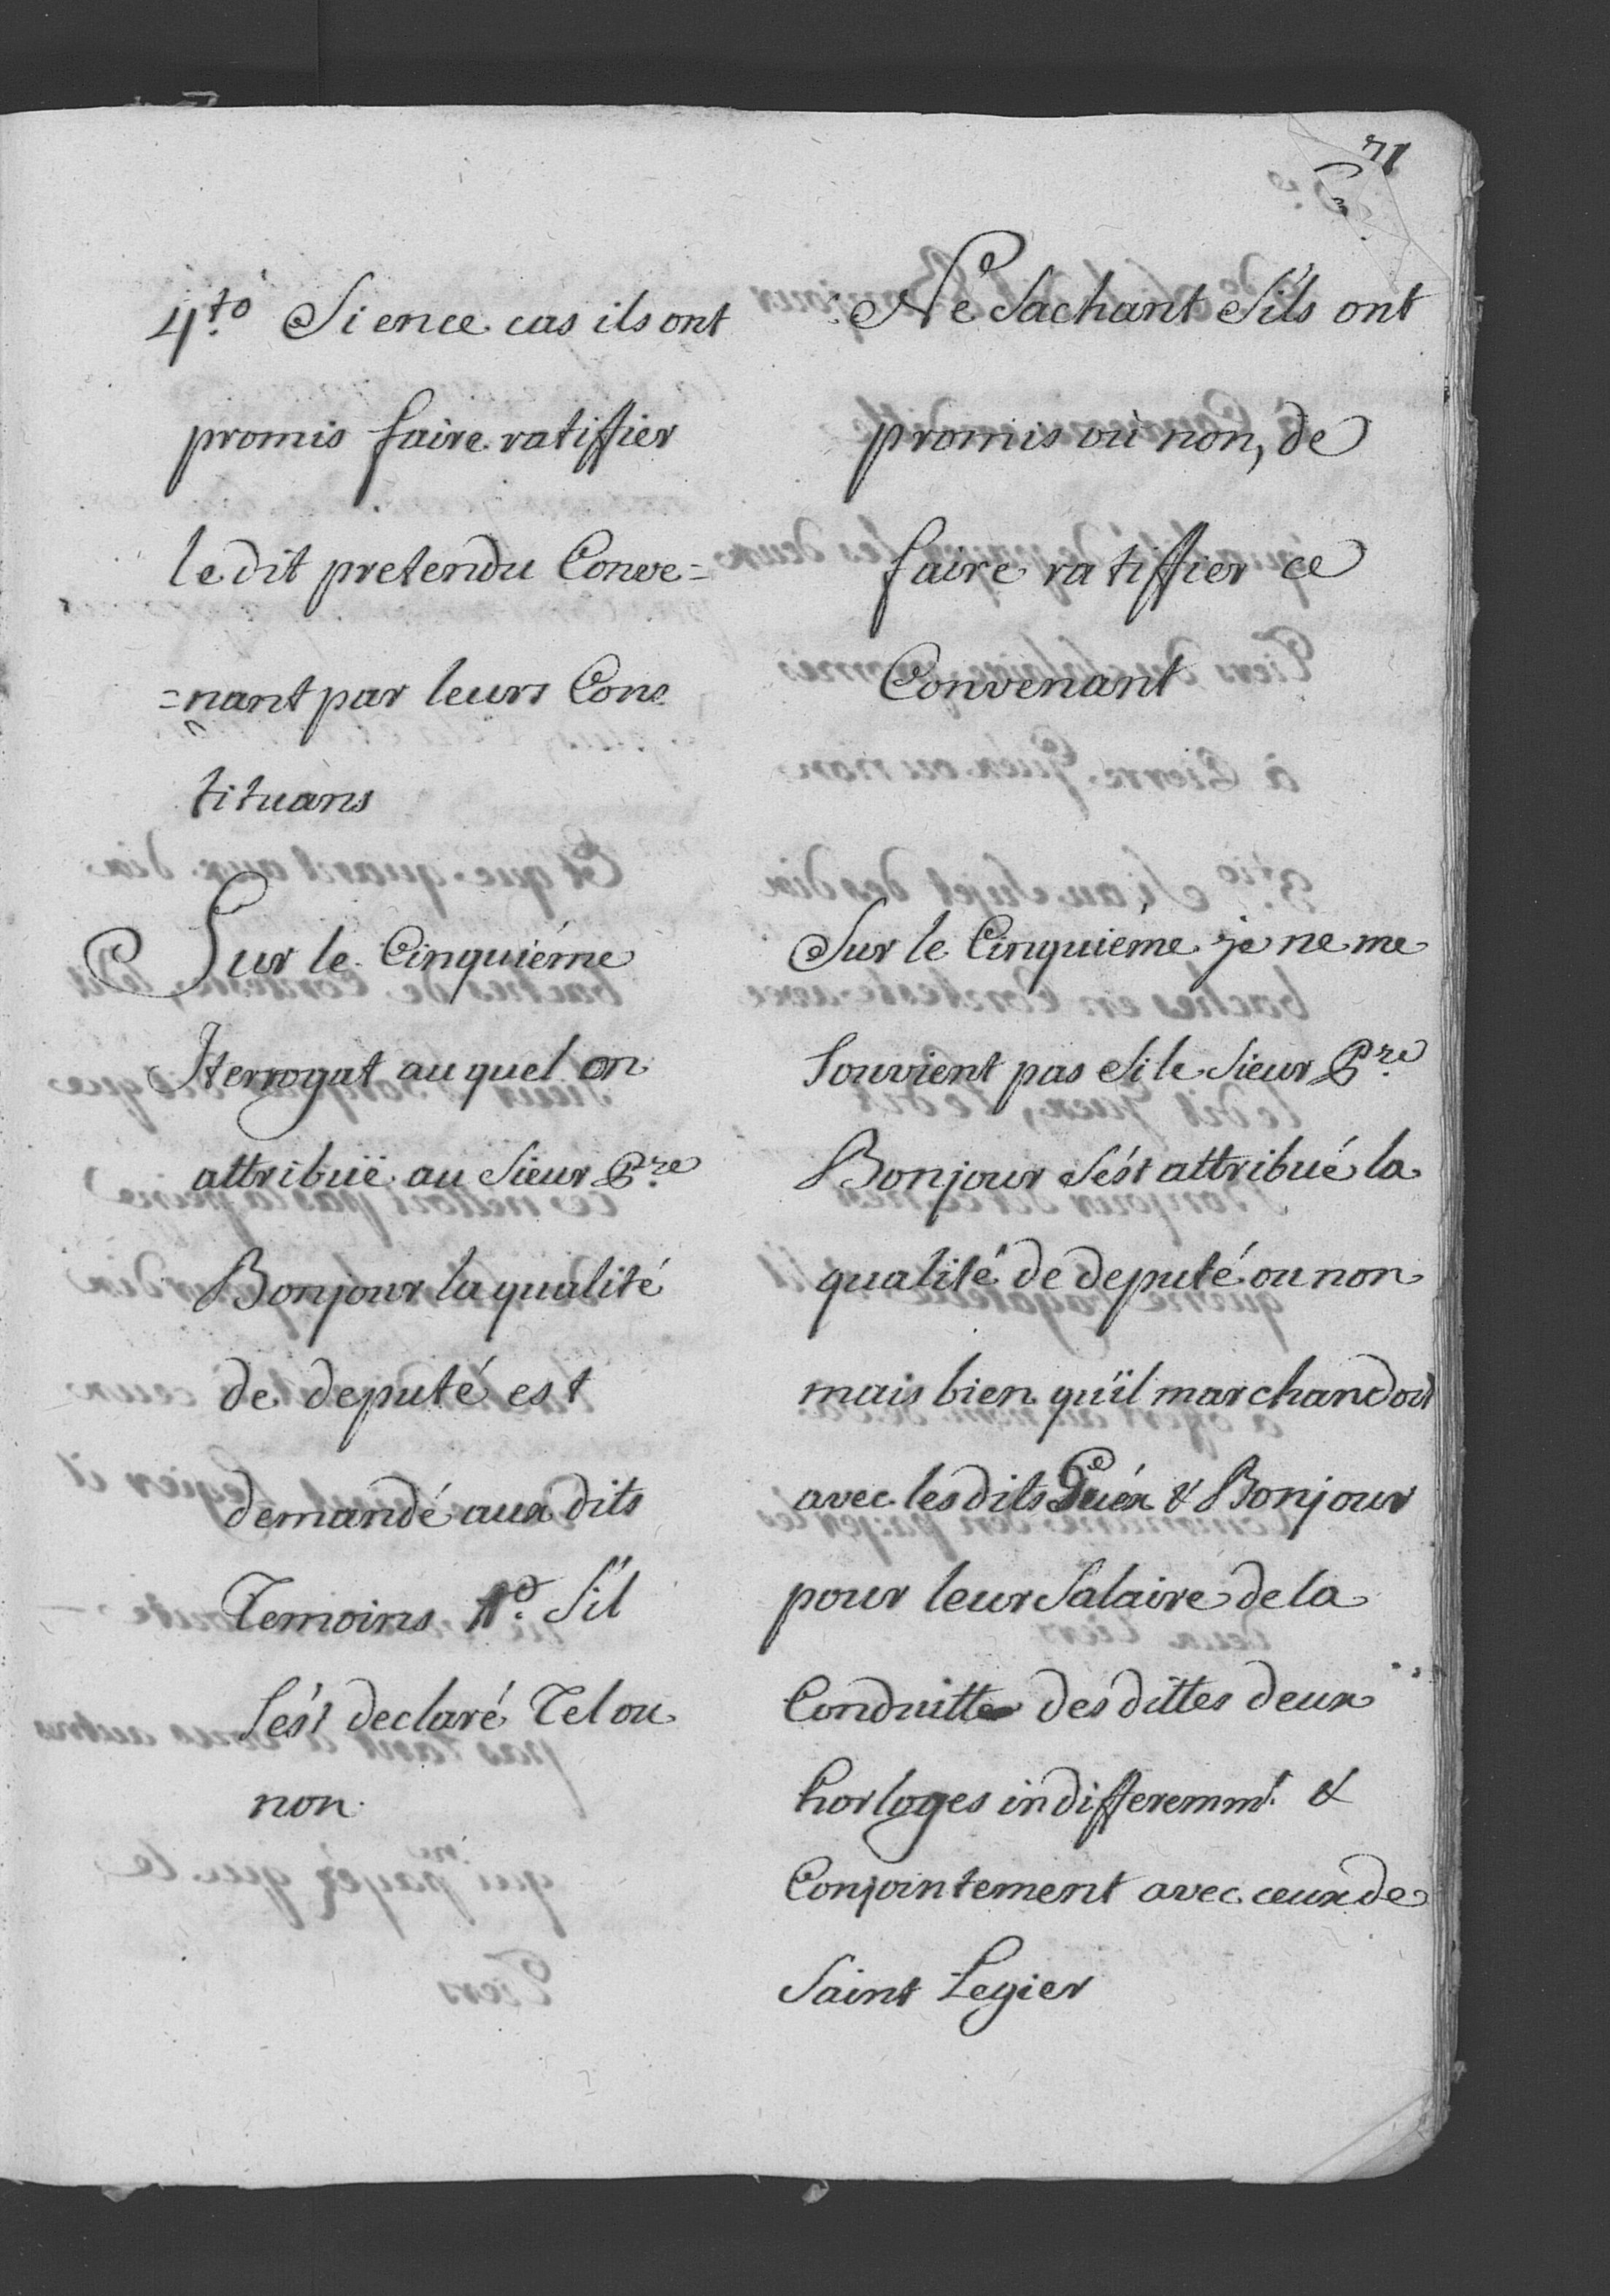 71
4.to Si en ce cas ils ont
promis faire ratiffier
le dit pretendu Conve=
=nant par leurs Cons
tituans
Sur le Cinquiéme
Iterrogat au quel on
attribuë au Sieur P.re
Bonjour la qualité
de deputé est
demandé aux dits
Temoins 1.o S'il
S'ést declaré Tel ou
non.
Ne Sachant S'ils ont
promis où non, de
faire ratiffier ce
Convenant
Sur le Cinquiéme je ne me
Souvient pas Si le Sieur P.re
Bonjour S'ést attribué la
qualité de deputé ou non
mais bien qu'il marchandoit
avec les dits Guéx & Bonjour
pour leur Salaire de la
Conduitte des dittes deux
horloges indifferemm.t &
Conjointement avec ceux de
Saint Legier